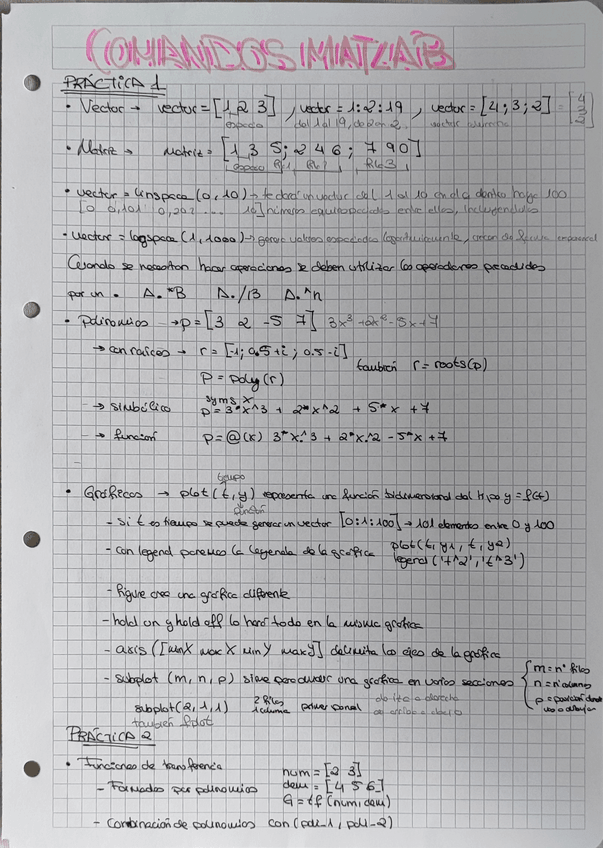 COMANDOS MATLAB
PRÁCTICA 1
• Vector → vector = [1 2 3] , vector = 1:2:19 , vector = [4;3;2] = [4 3 2]
espacio del 1 al 19, de 2 en 2 vector columna
• Matriz → matriz = [1 3 5; 2 4 6; 7 9 0]
espacio fila 1 fila 2 fila 3
• vector = linspace (0,10) → te dará un vector del 1 al 10 en el dentro haya 100
[0 0,101 0,202 ... 10] números equiespaciados entre ellos, incluyéndolos
• vector = logspace (1,1000) → genera valores espaciados logarítmicamente, crecen de forma exponencial
Cuando se necesitan hacer operaciones se deben utilizar los operadores precedidos
por un • A.*B A./B A.^n
• Polinomios → p = [3 2 -5 7] 3x³+2x²-5x+7
→ con raíces → r = [-1; 0.5+i ; 0.5-i] también r = roots(p)
P = poly(r)
→ simbólico syms x
p = 3*x^3 + 2*x^2 + 5*x +7
→ función p = @(x) 3*x.^3 + 2*x.^2 - 5*x +7
tiempo
• Gráficos → plot(t,y) representa una función bidimensional del tipo y=f(t)
función
- Si t es tiempo se puede generar un vector [0:1:100] → 101 elementos entre 0 y 100
- con legend ponemos la leyenda de la gráfica plot(t,y1,t,y2)
legend('t^2','t^3')
- figure crea una gráfica diferente
- hold on y hold off lo hará todo en la misma gráfica
- axis ([minX maxX minY maxY] delimita los ejes de la gráfica
- subplot (m,n,p) sirve para dividir una gráfica en varias secciones { m = nº filas
n = nº columnas
p = posición donde
va a dibujar
subplot(2,1,1) 2 filas 1 columna primer panel de izq a derecha
de arriba a abajo
también fplot
PRÁCTICA 2
• Funciones de transferencia
- Formadas por polinomios num = [2 3]
dem = [4 5 6]
G = tf (num, dem)
- Combinación de polinomios con (pol-1, pol-2)